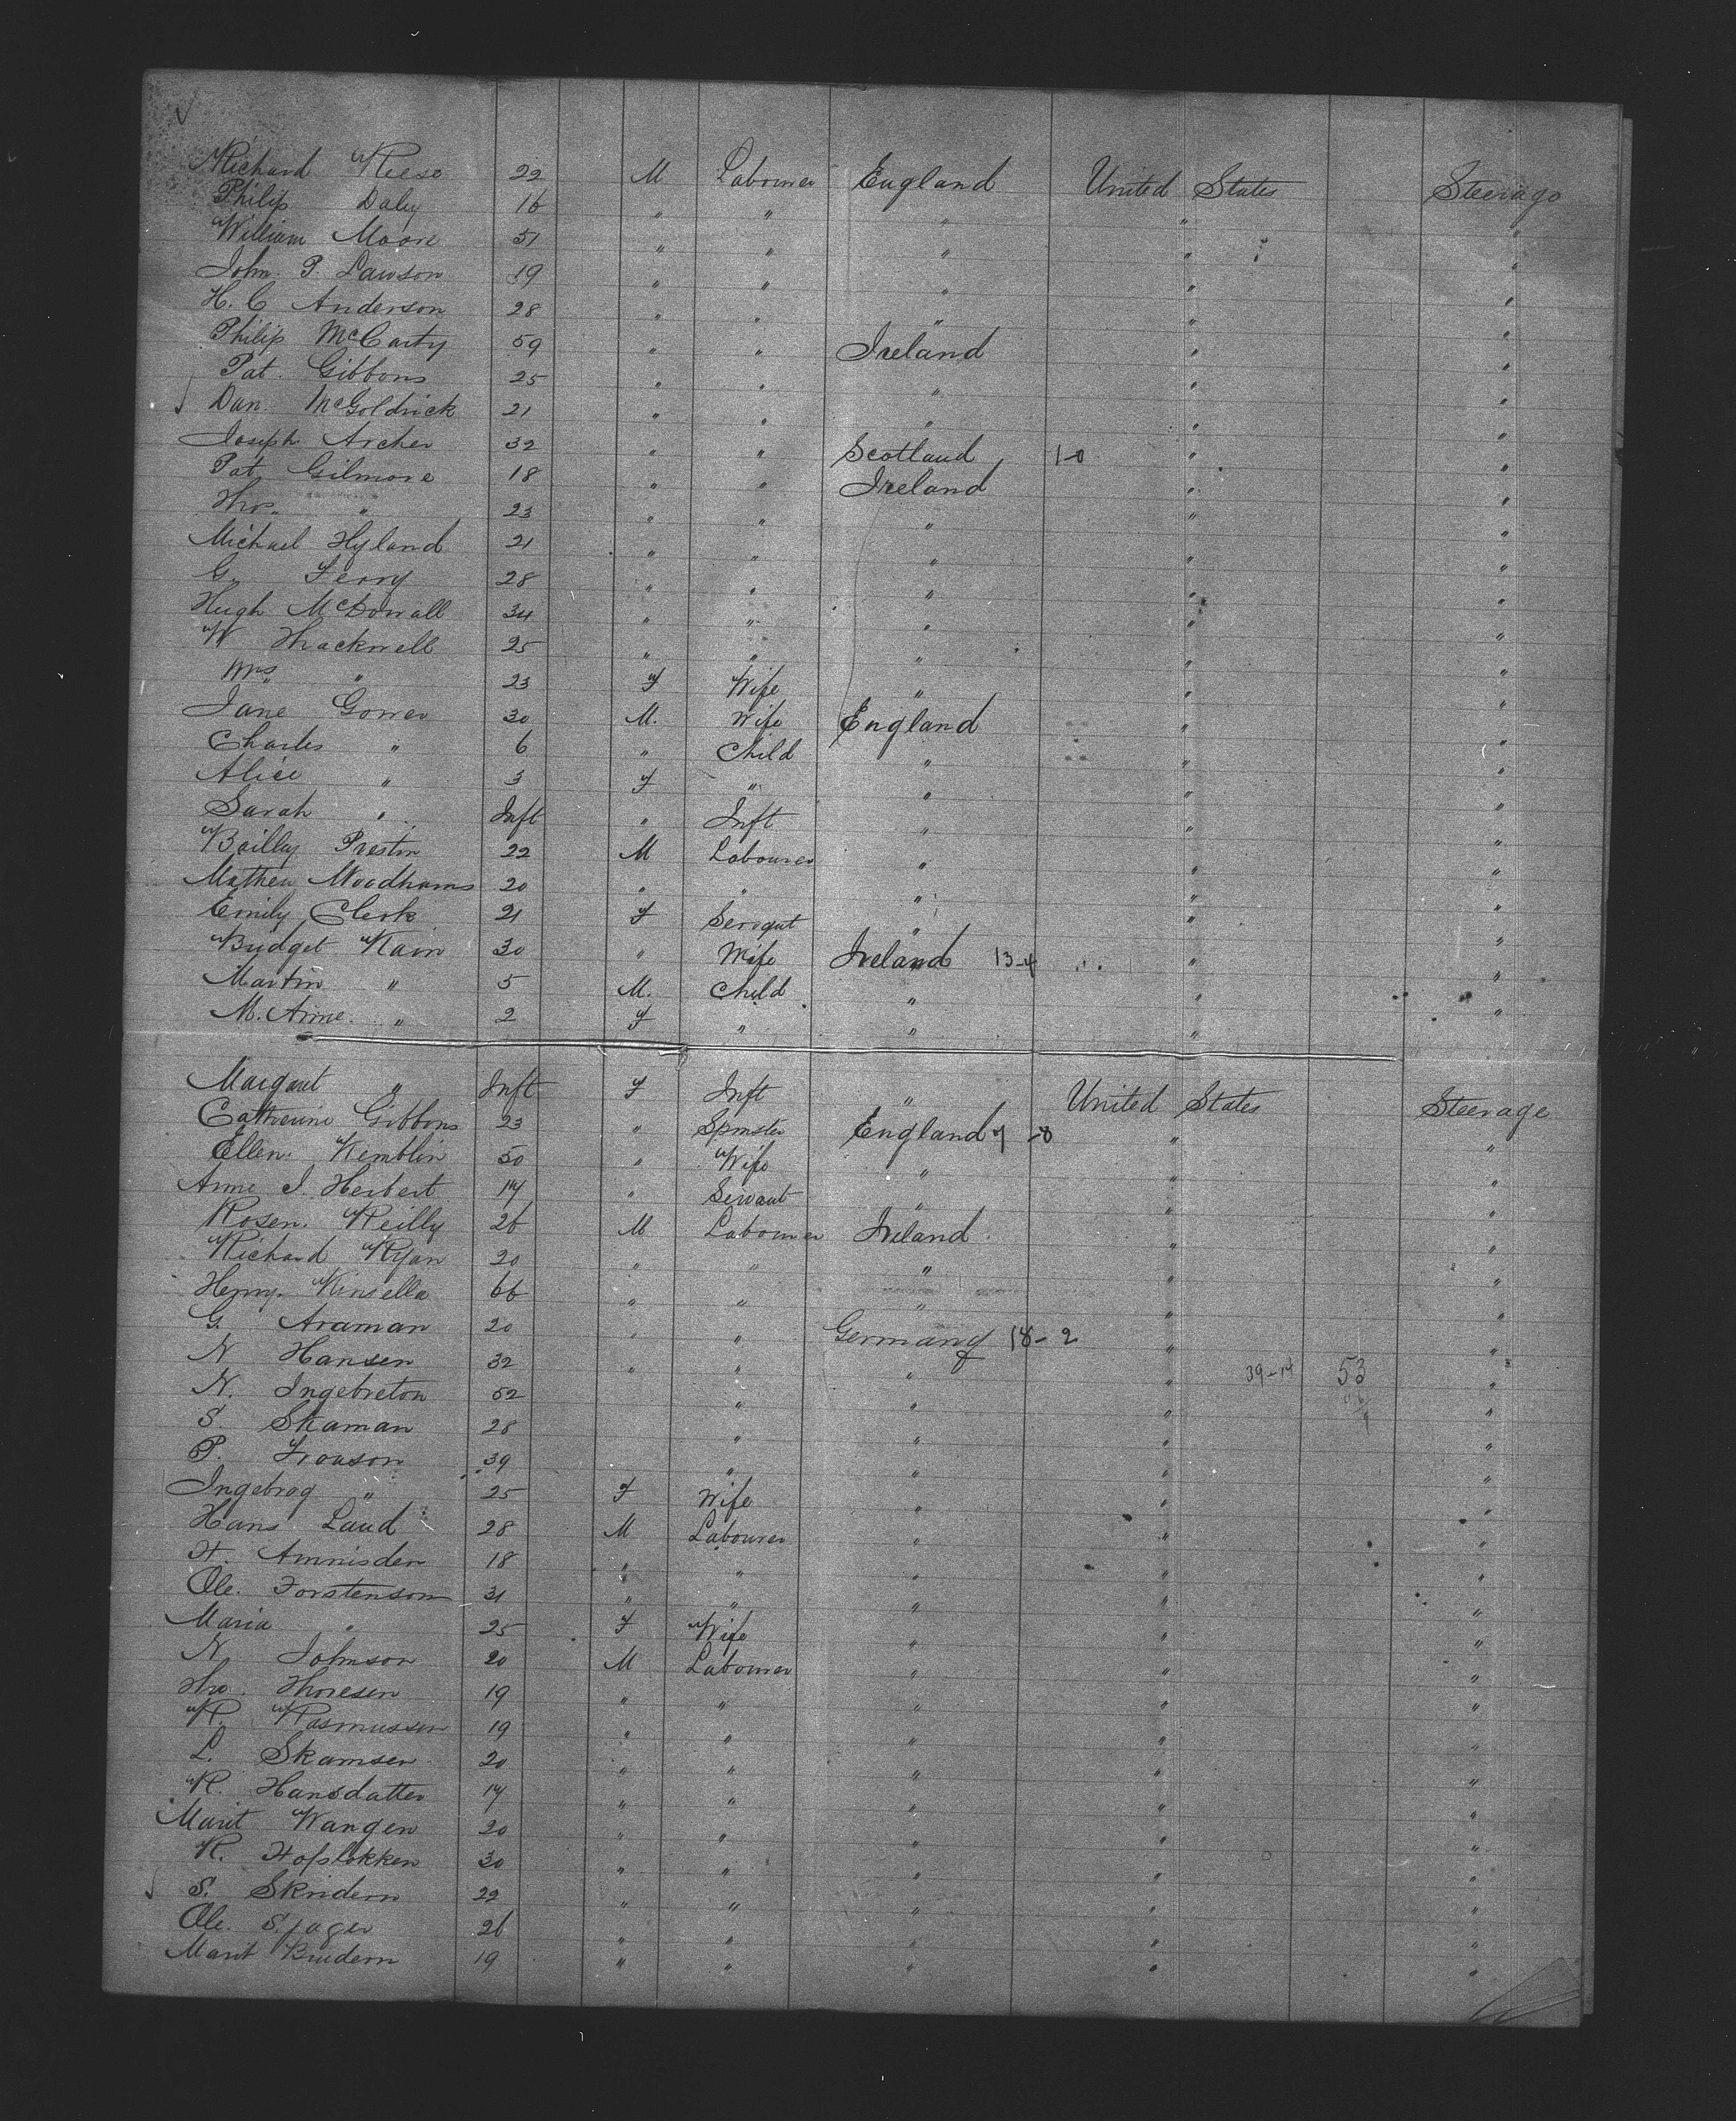 Richard Reese 22 M Labourer England United States Steerage
Philip Daley 16 " " " " "
William Moore 51 " " " " "
John P. Lawson 19 " " " " "
H. C Anderson 28 " " " " "
Philip McCarty 59 " " Ireland " "
Pat. Gibbons 25 " " " " "
Dan. McGoldrick 21 " " " " "
Joseph Archer 32 " " Scotland 1-0 " "
Pat Gilmore 18 " " Ireland " "
Thos. " 23 " " " " "
Michael Hyland 21 " " " " "
G. Ferry 28 " " " " "
Hugh McDowall 34 " " " " "
W Thackwell 25 " " " " "
Mrs " 23 F Wife " " "
Jane Gower 30 M. Wife England " "
Charles " 6 " Child " " "
Alice " 3 F " " " "
Sarah " Inft " Inft " " "
Bailley Preston 22 M Labourer " " "
Mathew Woodhams 20 " " " " "
Emily Clerk 21 F Servant " " "
Bridget Kain 30 " Wife Ireland 13-4 " "
Martin " 5 M. Child " " "
M. Anne " 2 F " " " "
Margaret " Inft F Inft " United States Steerage
Catherine Gibbons 23 " Spinster England 7-8 " "
Ellen Kemblin 50 " Wife " " "
Anne J. Herbert 17 " Servant " " "
Rosen. Reilly 26 M Labourer Ireland " "
Richard Ryan 20 " " " " "
Henry. Kinsella 66 " " " " "
G. Araman 20 " " Germany 18-2 " "
N Hansen 32 " " " " 39-14 53 "
N. Ingebreton 52 " " " "
S. Skaman 28 " " " "
P. Fronson 39 " " " "
Ingebrog " 25 F Wife " " "
Hans Laud 28 M Labourer " " "
H. Amnisden 18 " " " " "
Ole. Torstenson 31 " " " " "
Maria " 25 F Wife " " "
N Johnson 20 M Labourer " " "
Tho. Thoresen 19 " " " " "
R. Rasmussen 19 " " " " "
L. Skamsen 20 " " " " "
R. Hansdatter 17 " " " " "
Marit Wangen 20 " " " " "
R. Hofslokken 30 " " " " "
S. Skridern 22 " " " " "
Ole. S. jager 26 " " " " "
Marit Brudern 19 " " " " "